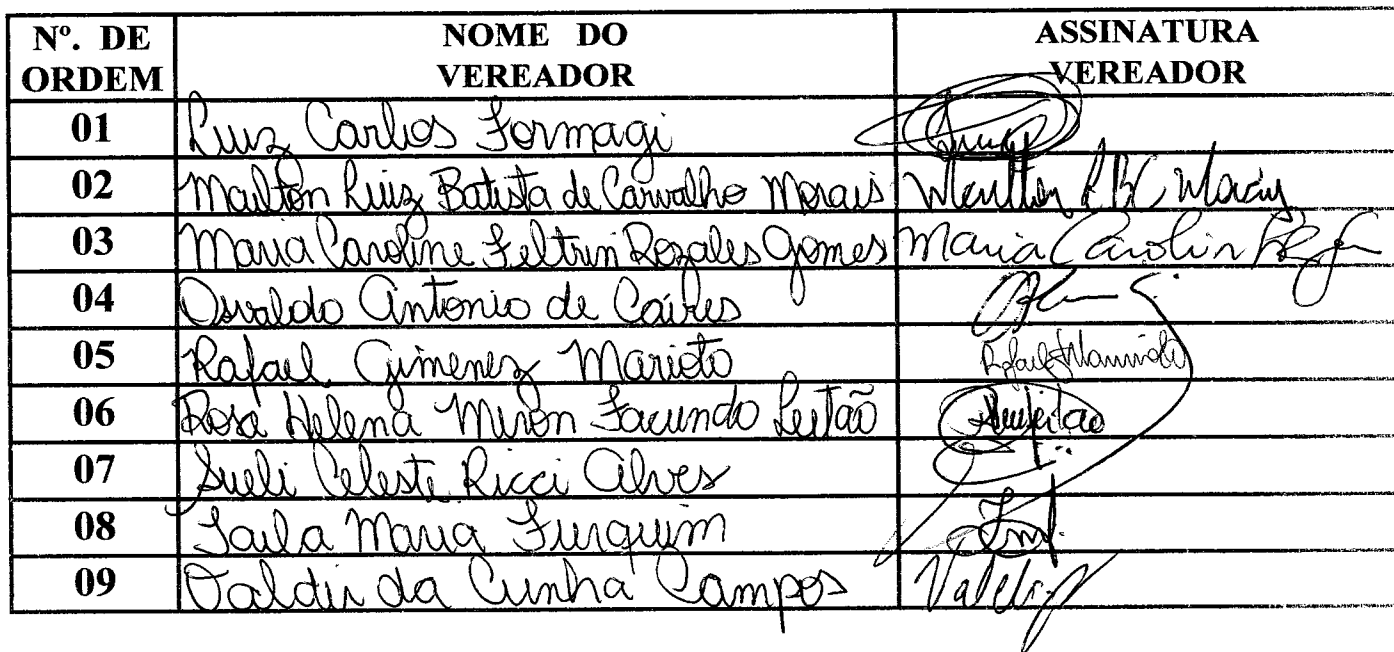 Nº. DE ORDEM NOME DO VEREADOR ASSINATURA VEREADOR
01 Luiz Carlos Formagi
02 Mailton Luiz Batista de Carvalho Morais
03 Maria Caroline Feltrin Rozales Gomes Maria Carolin
04 Osvaldo Antonio de Caíres
05 Rafael Gimenez Marioto
06 Rosa Helena Miron Facundo Leitão
07 Sueli Celeste Ricci Alves
08 Taila Maria Furquim
09 Valdir da Cunha Campos